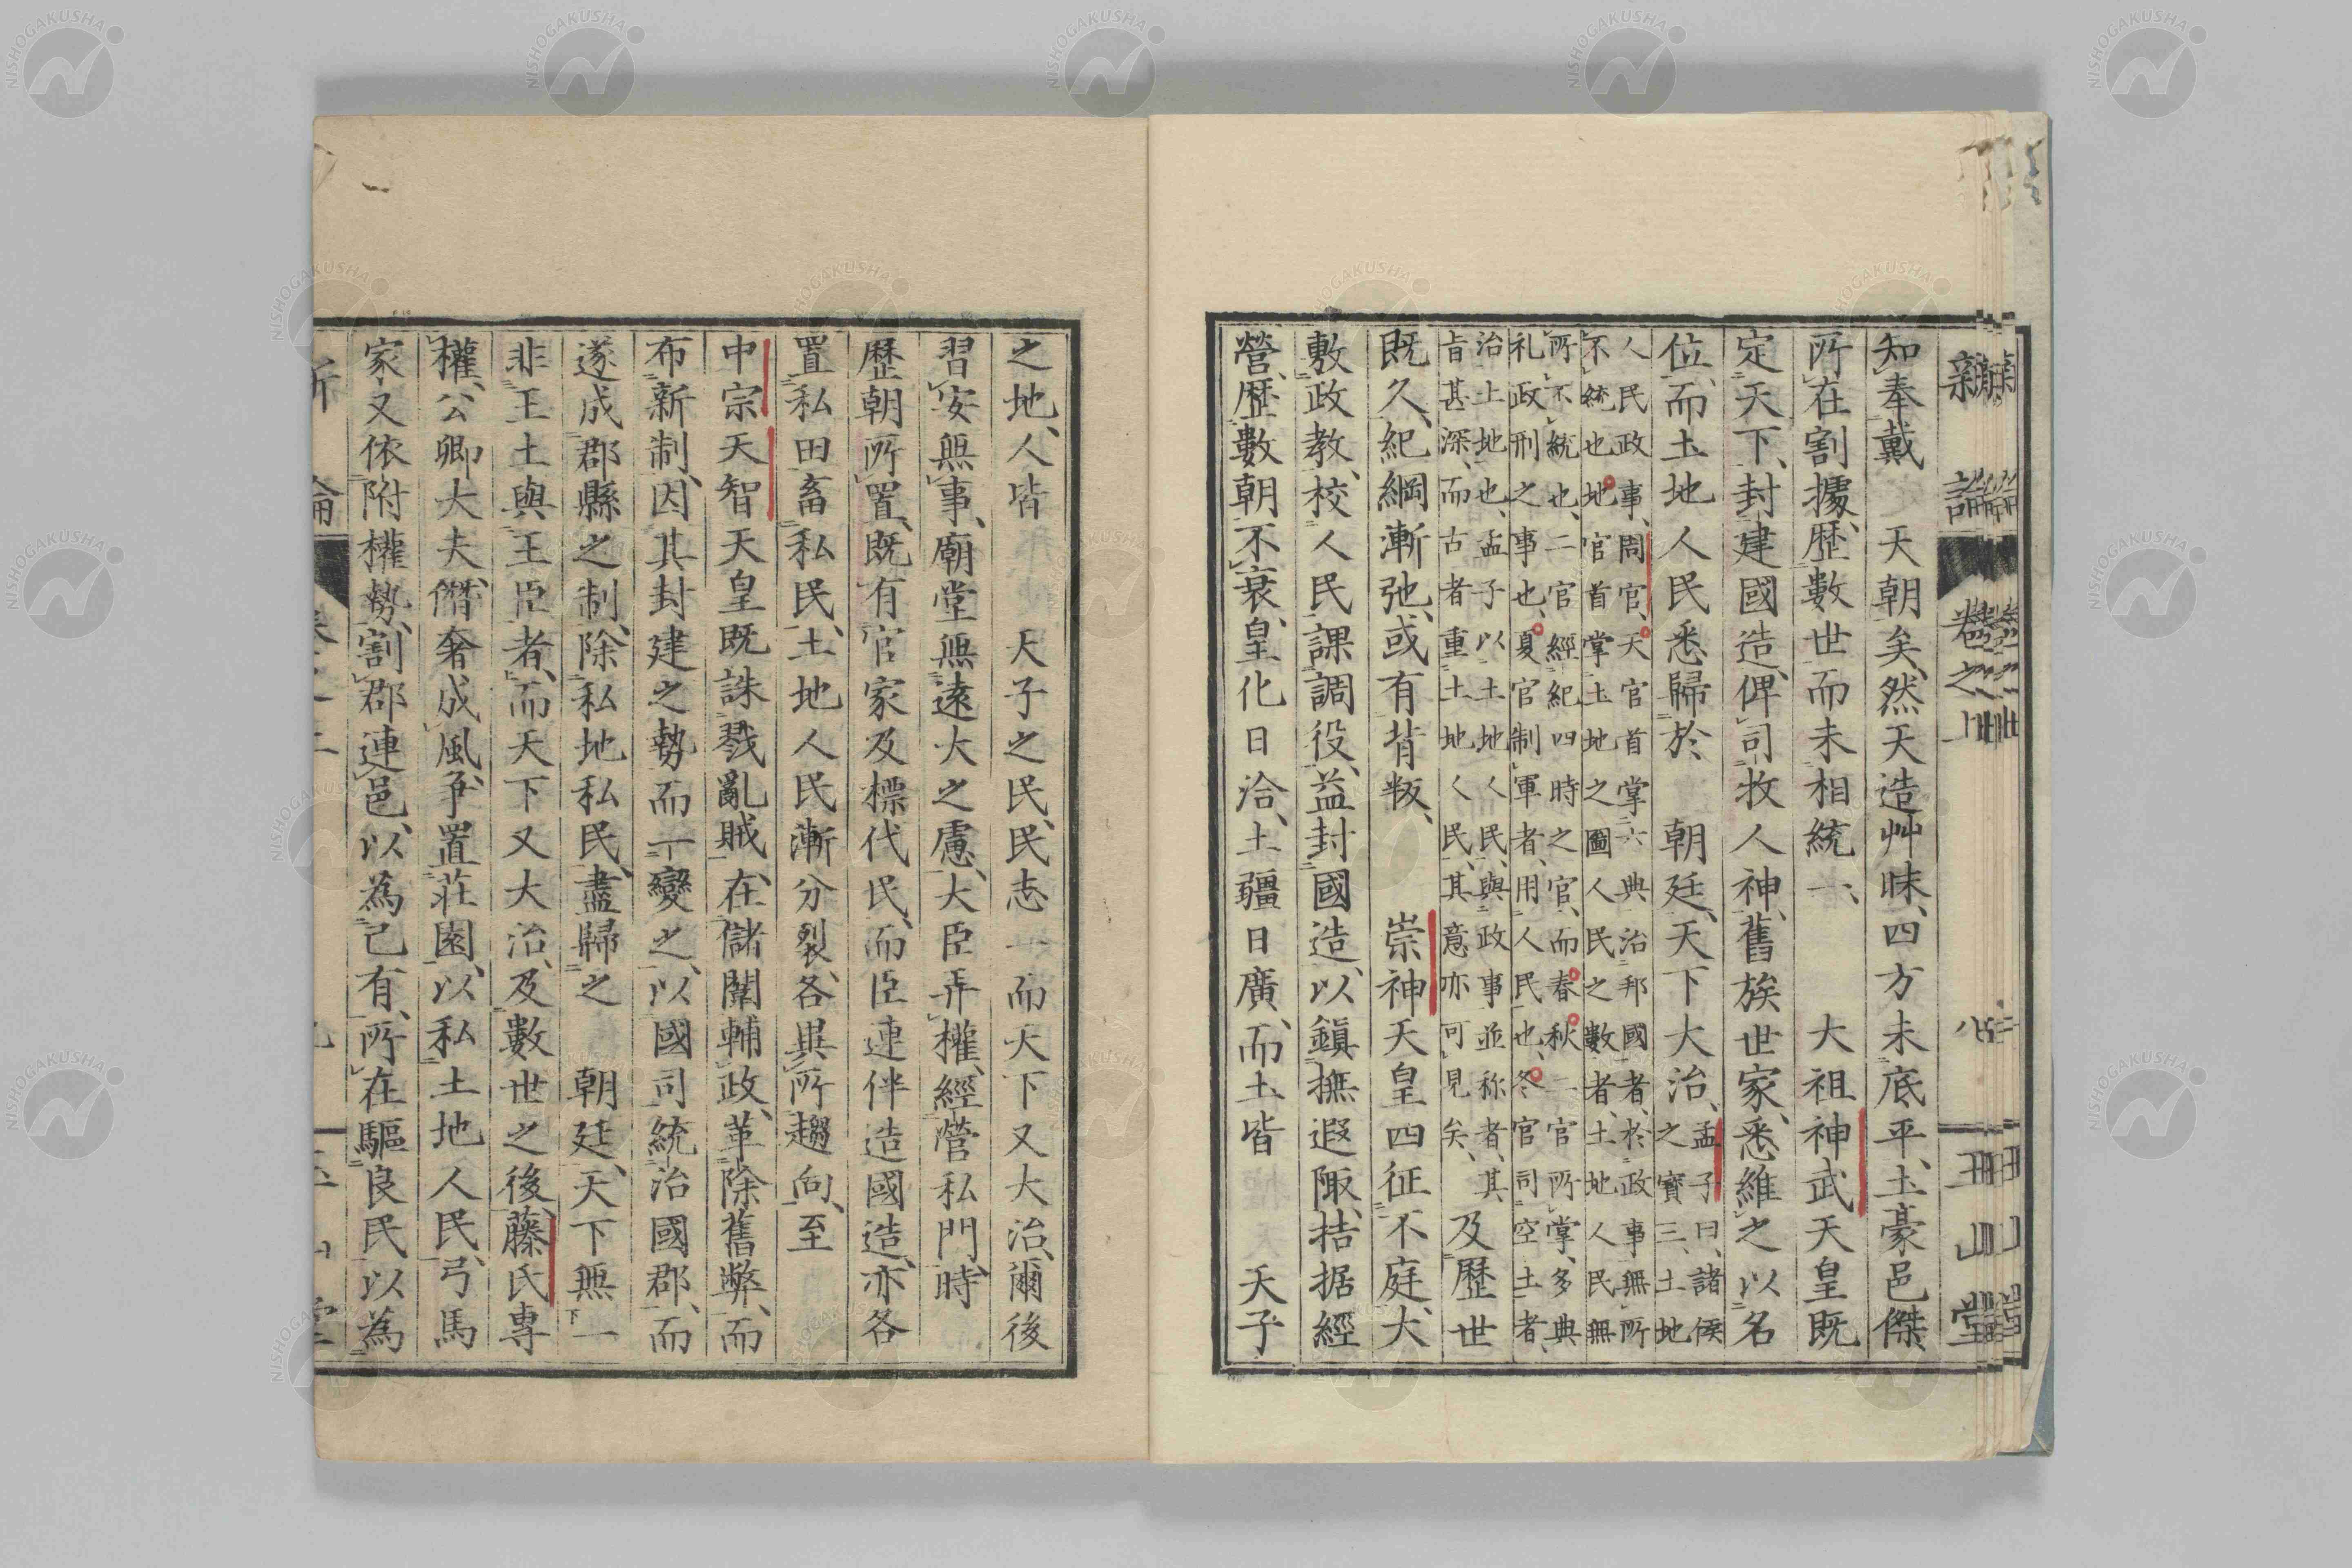 新論 卷之上 八 玉山堂
知奉戴 天朝矣、然天造艸昧、四方未底平、土豪邑傑、
所在割據、歴數世而未相統一、 大祖神武天皇既
定天下、封建國造、俾司牧人神、舊族世家、悉維之以名
位、而土地人民悉歸於 朝廷、天下大治、孟子曰、諸侯之寶三、土地
人民政事、周官、天官首掌六典治邦國者、於政事無所
不統也、地官首掌土地之圖人民之數者、土地人民無
所不統也、二官經紀四時之官、而春秋二官所掌、多典
礼政刑之事也、夏官制軍者、用人民也、冬官司空土者、
治土地也、孟子以土地人民、與政事並称者、其
旨甚深、而古者重土地人民、其意亦可見矣、 及歴世
既久、紀綱漸弛、或有背叛、 崇神天皇四征不庭、大
敷政教、校人民課調役、益封國造、以鎮撫遐陬、拮据經
營、歴數朝不衰、皇化日洽、土疆日廣、而土皆 天子
之地、人皆 天子之民、民志一而天下又大治、爾後
習安無事、廟堂無遠大之慮、大臣弄權、經營私門、時
歴朝所置、既有官家及標代民、而臣連伴造國造、亦各
置私田畜私民、土地人民漸分裂、各異所趨向、至
中宗天智天皇既誅戮亂賊、在儲闈輔政、革除舊弊、而
布新制、因其封建之勢而一變之、以國司統治國郡、而
遂成郡縣之制、除私地私民、盡歸之 朝廷、天下無一
非王土與王臣者、而天下又大治、及數世之後、藤氏專
權、公卿大夫、僭奢成風、爭置莊園、以私土地人民、弓馬
家又依附權勢、割郡連邑、以為己有、所在驅良民以為